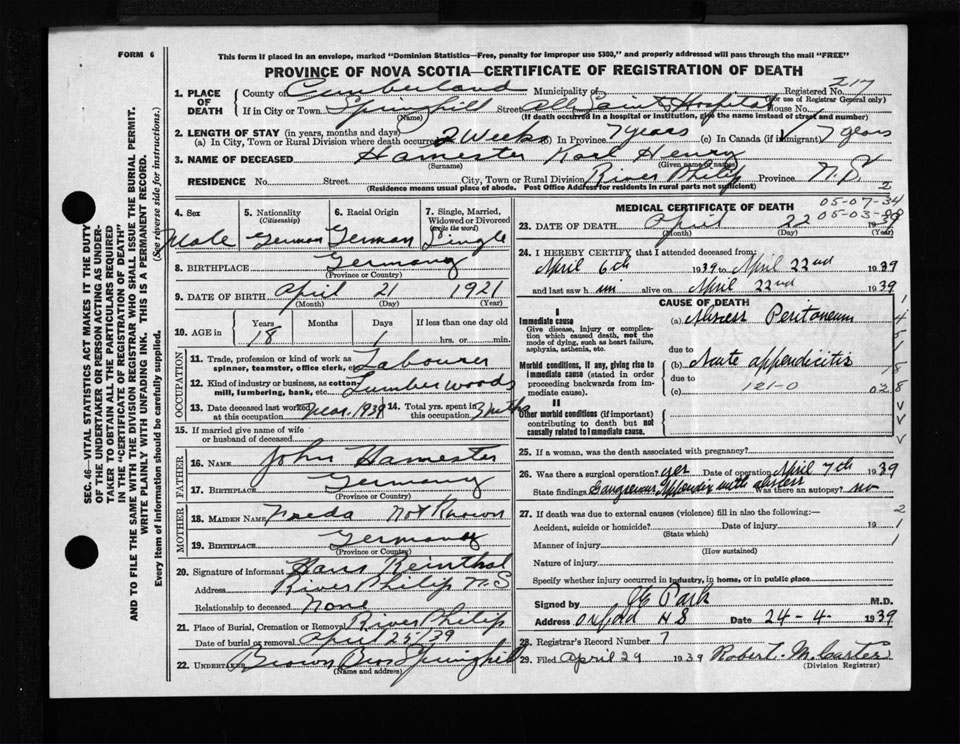 FORM 6
This form if placed in an envelope, marked "Dominion Statistics—Free, penalty for improper use $300," and properly addressed will pass through the mail "FREE"
PROVINCE OF NOVA SCOTIA—CERTIFICATE OF REGISTRATION OF DEATH
1. PLACE OF DEATH
County of Cumberland Municipality of Registered No. 217
(For use of Registrar General only)
If in City or Town Springhill Street All Saints Hospital House No.
(Name) (If death occurred in a hospital or institution, give the name instead of street and number)
2. LENGTH OF STAY (in years, months and days)
(a) In City, Town or Rural Division where death occurred 2 Weeks (b) In Province 7 years (c) In Canada (if immigrant) 7 years
3. NAME OF DECEASED Hamester Karl Henry
(Surname) (Given name or names)
RESIDENCE No. Street City, Town or Rural Division River Philip Province N.S.
(Residence means usual place of abode. Post Office Address for residents in rural parts not sufficient)
2
4. Sex
Male
5. Nationality
(Citizenship)
German
6. Racial Origin
German
7. Single, Married, Widowed or Divorced
(write the word)
Single
8. BIRTHPLACE Germany
(Province or Country)
9. DATE OF BIRTH April 21 1921
(Month) (Day) (Year)
10. AGE in
Years Months Days If less than one day old
18 1 hrs. or min.
OCCUPATION
11. Trade, profession or kind of work as spinner, teamster, office clerk, etc. Labourer
12. Kind of industry or business, as cotton mill, lumbering, bank, etc. Lumber woods
13. Date deceased last worked at this occupation 1939
14. Total yrs. spent in this occupation
15. If married give name of wife or husband of deceased
FATHER
16. NAME John Hamester
17. BIRTHPLACE Germany
(Province or Country)
MOTHER
18. MAIDEN NAME Not Known
19. BIRTHPLACE Germany
(Province or Country)
20. Signature of informant Hans Reinthal
Address River Philip N.S
Relationship to deceased None
21. Place of Burial, Cremation or Removal River Philip
Date of burial or removal April 25/39
22. UNDERTAKER Brown Bros Springhill
(Name and address)
MEDICAL CERTIFICATE OF DEATH
05-07-34
05-03-88
23. DATE OF DEATH April 22 1939
(Month) (Day) (Year)
24. I HEREBY CERTIFY that I attended deceased from:
April 6th 1939 to April 22nd 1939
and last saw him alive on April 22nd 1939
CAUSE OF DEATH
I
Immediate cause
Give disease, injury or complication which caused death, not the mode of dying, such as heart failure, asphyxia, asthenia, etc.
(a) Abscess Peritoneum
due to
Morbid conditions, if any, giving rise to immediate cause (stated in order proceeding backwards from immediate cause).
(b) Acute appendicitis
due to
(c) 121-0
028
II
Other morbid conditions (if important) contributing to death but not causally related to immediate cause.
25. If a woman, was the death associated with pregnancy?
26. Was there a surgical operation? yes Date of operation April 7th 1939
State findings Gangrenous Appendix with abscess Was there an autopsy? no
27. If death was due to external causes (violence) fill in also the following:—
Accident, suicide or homicide? Date of injury 19
(State which)
Manner of injury
(How sustained)
Nature of injury
Specify whether injury occurred in industry, in home, or in public place
Signed by Park M.D.
Address Oxford N S Date 24-4- 1939
28. Registrar's Record Number 7
29. Filed April 29 1939 Robert M. Carter
(Division Registrar)
SEC. 46—VITAL STATISTICS ACT MAKES IT THE DUTY OF THE UNDERTAKER OR PERSON ACTING AS UNDERTAKER TO OBTAIN ALL THE PARTICULARS REQUIRED IN THE "CERTIFICATE OF REGISTRATION OF DEATH"
AND TO FILE THE SAME WITH THE DIVISION REGISTRAR WHO SHALL ISSUE THE BURIAL PERMIT.
WRITE PLAINLY WITH UNFADING INK. THIS IS A PERMANENT RECORD.
Every item of information should be carefully supplied. (See reverse side for instructions.)